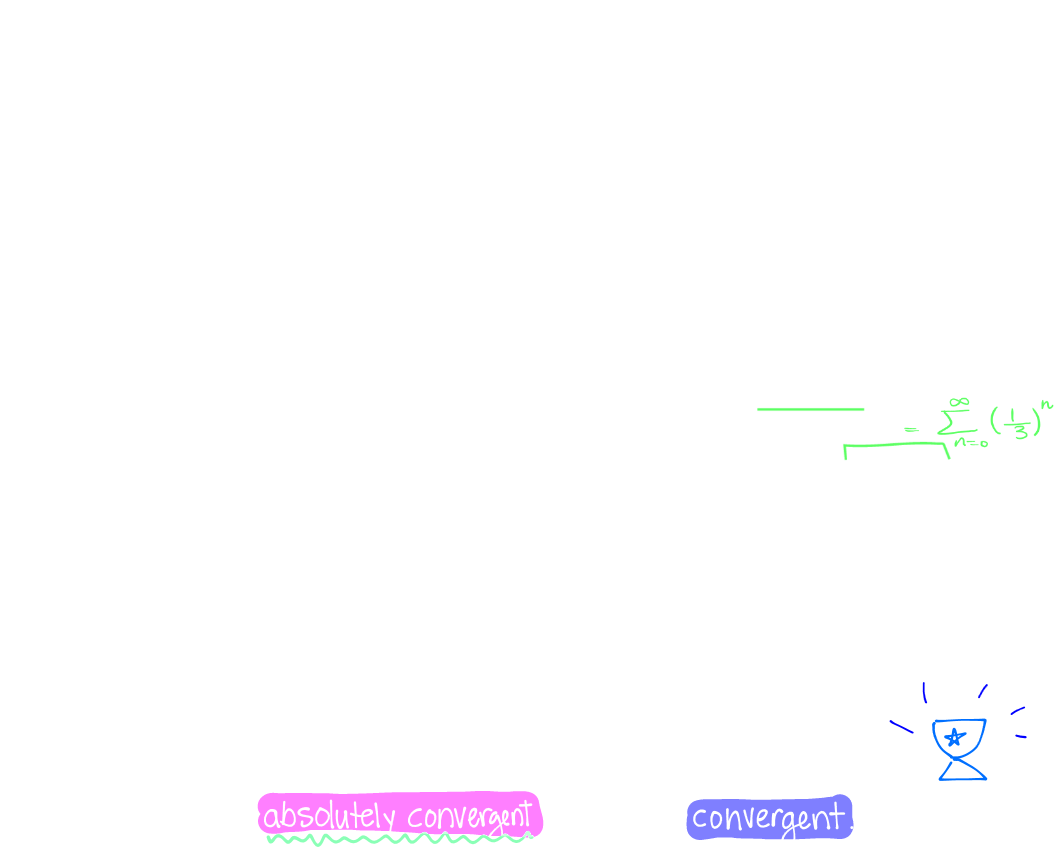 = ∑_{n=0}^{∞} (1/3)^n
absolutely convergent convergent.